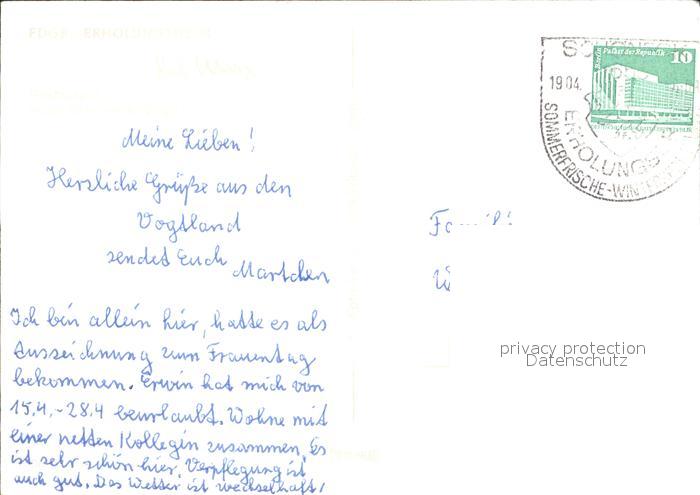 FDGB - ERHOLUNGSHEIM
Meine Lieben!
Herzliche Grüße aus dem
Vogtland
sendet Euch Martchen
Ich bin allein hier, hatte es als
Auszeichnung zum Frauentag
bekommen. Erwin hat mich von
15.4.-28.4 beurlaubt. Wohne mit
einer netten Kollegin zusammen. Es
ist sehr schön hier. Verpflegung ist
auch gut. Das Wetter ist wechselhaft!
Berlin, Palast der Republik 10
19.04.
ERHOLUNGS
SOMMERFRISCHE-WINTERSP
privacy protection
Datenschutz